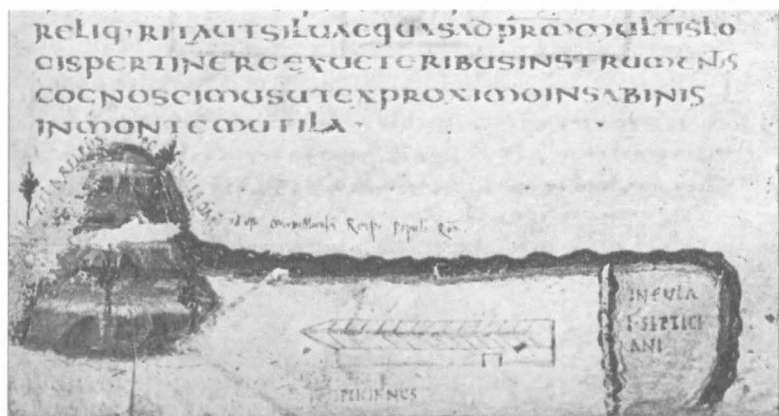 RELIQ· RITAUTSILUAEQUASADPRMMULTISLO
CISPERTINEREEXUETERIBUSINSTRUMENTIS
COGNOSCIMUSUTEXPROXIMOINSABINIS
INMONTEMUTILA·
Populi Rom̄.
INSULA
SEPTICI
ANI